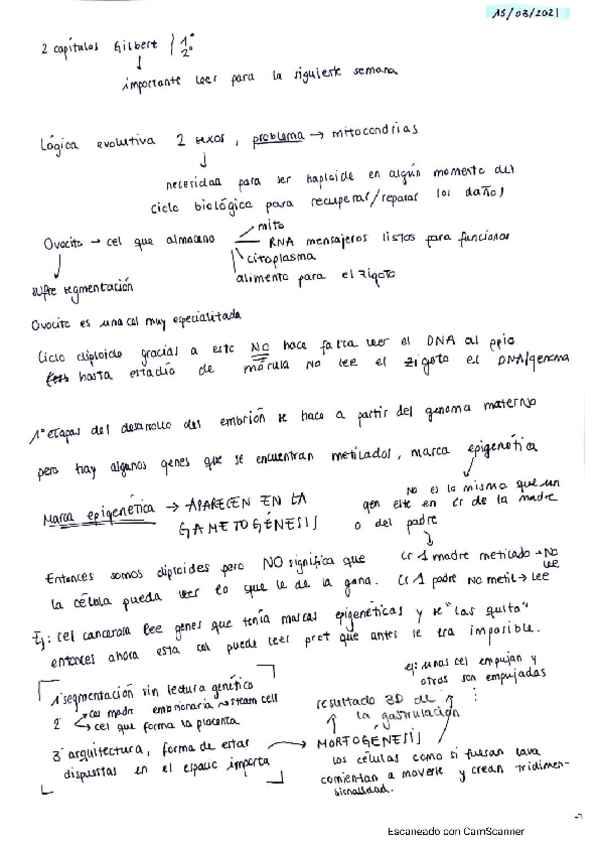 15/03/2021
2 capítulos Gilbert 1º
2º
importante leer para la siguiente semana
Lógica evolutiva 2 sexos, problema → mitocondrias
necesidad para ser haploide en algún momento del
ciclo biológico para recuperar/reparar los daños
Ovocito → cel que almacena
mito
RNA mensajeros listos para funcionar
citoplasma
alimento para el zigoto
sufre segmentación
Ovocito es una cel muy especialitada
Ciclo diploide gracias a esto NO hace falta leer el DNA al ppio
hasta estadio de mórula no lee el zigoto el DNA/genoma
1º etapas del desarrollo del embrión se hace a partir del genoma materno
pero hay algunos genes que se encuentran metilados, marca epigenética
Marca epigenética → APARECEN EN LA
GAMETOGÉNESIS
No es lo mismo que un
gen esté en cr de la madre
o del padre
cr 1 madre metilado → No
lee
cr 1 padre no metil → lee
Entonces somos diploides pero NO significa que
la célula pueda leer lo que le de la gana.
Ej: cel cancerosa lee genes que tenía marcas epigenéticas y se "las quita"
entonces ahora esta cel puede leer prot que antes le era imposible.
1 segmentación sin lectura genético
2 cel madre embrionaria → steam cell
cel que forma la placenta
3 arquitectura, forma de estar
dispuestas en el espacio importa
ej: unas cel empujan y
otras son empujadas
resultado 3D de
la gastrulación
MORFOGÉNESIS
las células como si fueran lava
comienzan a moverse y crean tridimen-
sionalidad.
Escaneado con CamScanner